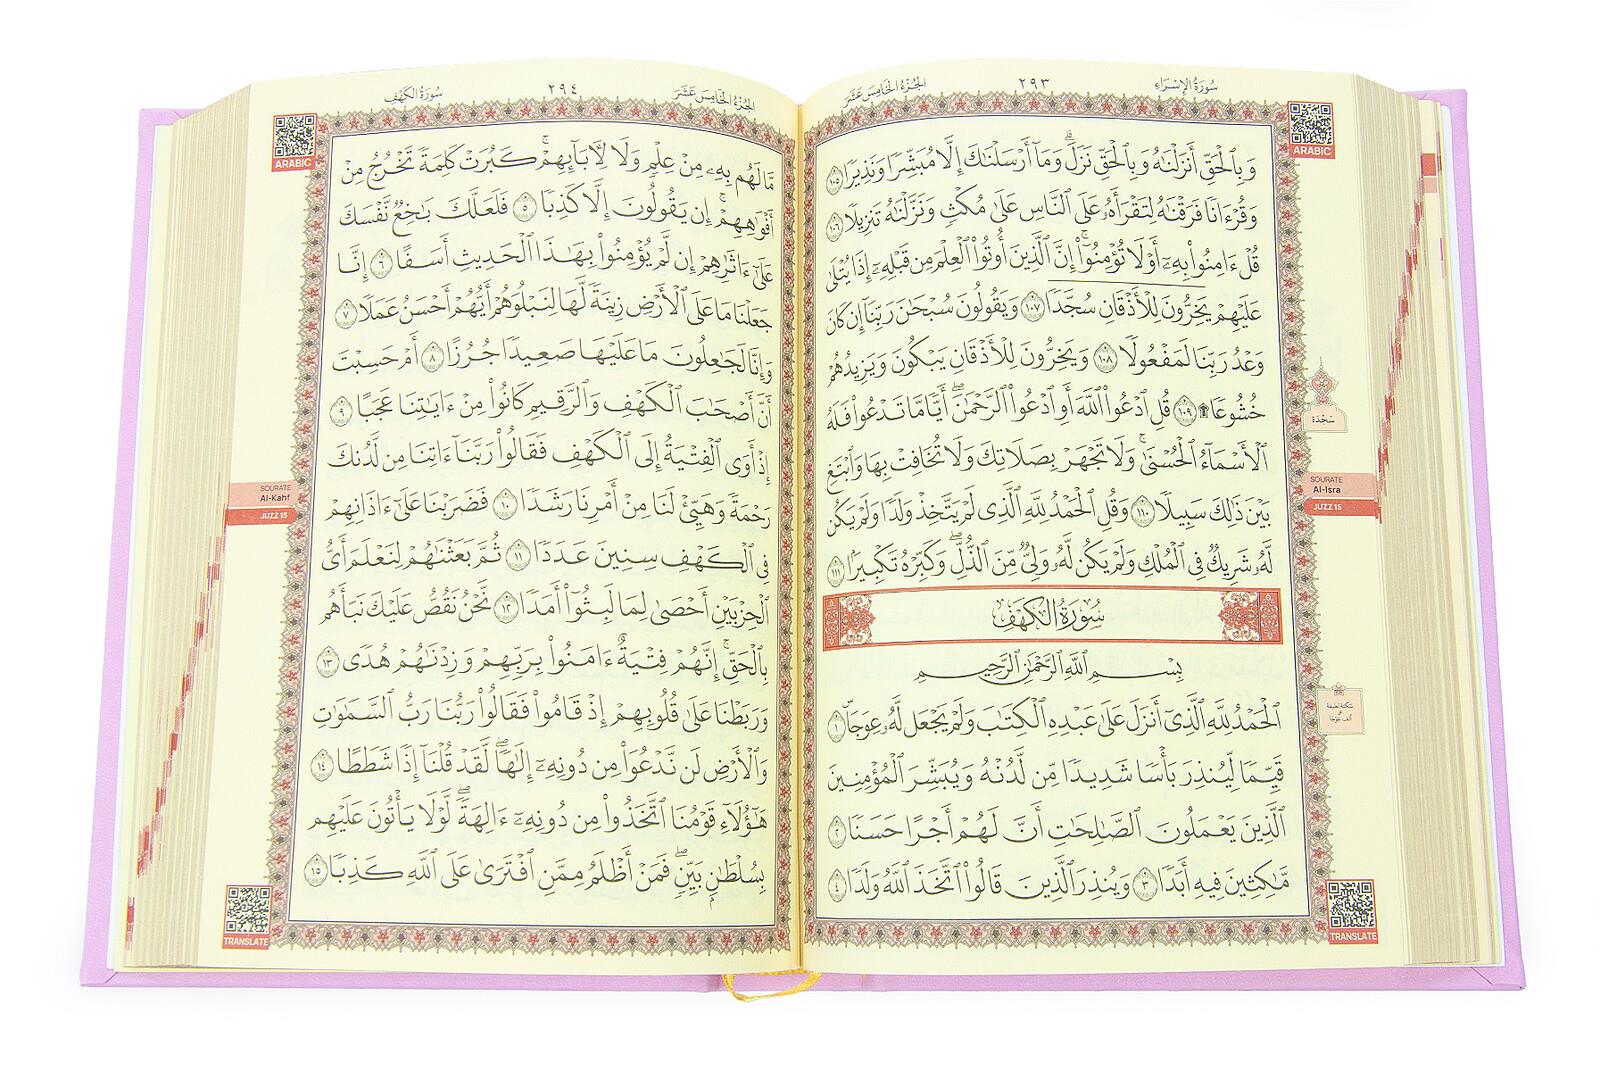 سُورَةُ الإِسْرَاءِ
٢٩٣
الجُزْءُ الخَامِسَ عَشَرَ
ARABIC
وَبِالْحَقِّ أَنزَلْنَٰهُ وَبِالْحَقِّ نَزَلَ ۗ وَمَآ أَرْسَلْنَٰكَ إِلَّا مُبَشِّرًا وَنَذِيرًا ١٠٥
وَقُرْءَانًا فَرَقْنَٰهُ لِتَقْرَأَهُۥ عَلَى ٱلنَّاسِ عَلَىٰ مُكْثٍ وَنَزَّلْنَٰهُ تَنزِيلًا ١٠٦
قُلْ ءَامِنُوا۟ بِهِۦٓ أَوْ لَا تُؤْمِنُوٓا۟ ۚ إِنَّ ٱلَّذِينَ أُوتُوا۟ ٱلْعِلْمَ مِن قَبْلِهِۦٓ إِذَا يُتْلَىٰ
عَلَيْهِمْ يَخِرُّونَ لِلْأَذْقَانِ سُجَّدًا ١٠٧ وَيَقُولُونَ سُبْحَٰنَ رَبِّنَآ إِن كَانَ
وَعْدُ رَبِّنَا لَمَفْعُولًا ١٠٨ وَيَخِرُّونَ لِلْأَذْقَانِ يَبْكُونَ وَيَزِيدُهُمْ
خُشُوعًا ۩ ١٠٩ قُلِ ٱدْعُوا۟ ٱللَّهَ أَوِ ٱدْعُوا۟ ٱلرَّحْمَٰنَ ۖ أَيًّا مَّا تَدْعُوا۟ فَلَهُ
ٱلْأَسْمَآءُ ٱلْحُسْنَىٰ ۚ وَلَا تَجْهَرْ بِصَلَاتِكَ وَلَا تُخَافِتْ بِهَا وَٱبْتَغِ
بَيْنَ ذَٰلِكَ سَبِيلًا ١١٠ وَقُلِ ٱلْحَمْدُ لِلَّهِ ٱلَّذِى لَمْ يَتَّخِذْ وَلَدًا وَلَمْ يَكُن
لَّهُۥ شَرِيكٌ فِى ٱلْمُلْكِ وَلَمْ يَكُن لَّهُۥ وَلِىٌّ مِّنَ ٱلذُّلِّ ۖ وَكَبِّرْهُ تَكْبِيرًۢا ١١١
سُورَةُ الكَهْفِ
بِسْمِ ٱللَّهِ ٱلرَّحْمَٰنِ ٱلرَّحِيمِ
ٱلْحَمْدُ لِلَّهِ ٱلَّذِىٓ أَنزَلَ عَلَىٰ عَبْدِهِ ٱلْكِتَٰبَ وَلَمْ يَجْعَل لَّهُۥ عِوَجَاۜ ١
قَيِّمًا لِّيُنذِرَ بَأْسًا شَدِيدًا مِّن لَّدُنْهُ وَيُبَشِّرَ ٱلْمُؤْمِنِينَ
ٱلَّذِينَ يَعْمَلُونَ ٱلصَّٰلِحَٰتِ أَنَّ لَهُمْ أَجْرًا حَسَنًا ٢
مَّٰكِثِينَ فِيهِ أَبَدًا ٣ وَيُنذِرَ ٱلَّذِينَ قَالُوا۟ ٱتَّخَذَ ٱللَّهُ وَلَدًا ٤
سَجْدَة
SOURATE
Al-Isra
JUZZ 15
سكتة لطيفة
على
ألف عوجا
TRANSLATE
الجُزْءُ الخَامِسَ عَشَرَ
٢٩٤
سُورَةُ الكَهْفِ
ARABIC
مَّا لَهُم بِهِۦ مِنْ عِلْمٍ وَلَا لِءَابَآئِهِمْ ۚ كَبُرَتْ كَلِمَةً تَخْرُجُ مِنْ
أَفْوَٰهِهِمْ ۚ إِن يَقُولُونَ إِلَّا كَذِبًا ٥ فَلَعَلَّكَ بَٰخِعٌ نَّفْسَكَ
عَلَىٰٓ ءَاثَٰرِهِمْ إِن لَّمْ يُؤْمِنُوا۟ بِهَٰذَا ٱلْحَدِيثِ أَسَفًا ٦ إِنَّا
جَعَلْنَا مَا عَلَى ٱلْأَرْضِ زِينَةً لَّهَا لِنَبْلُوَهُمْ أَيُّهُمْ أَحْسَنُ عَمَلًا ٧
وَإِنَّا لَجَٰعِلُونَ مَا عَلَيْهَا صَعِيدًا جُرُزًا ٨ أَمْ حَسِبْتَ
أَنَّ أَصْحَٰبَ ٱلْكَهْفِ وَٱلرَّقِيمِ كَانُوا۟ مِنْ ءَايَٰتِنَا عَجَبًا ٩
إِذْ أَوَى ٱلْفِتْيَةُ إِلَى ٱلْكَهْفِ فَقَالُوا۟ رَبَّنَآ ءَاتِنَا مِن لَّدُنكَ
رَحْمَةً وَهَيِّئْ لَنَا مِنْ أَمْرِنَا رَشَدًا ١٠ فَضَرَبْنَا عَلَىٰٓ ءَاذَانِهِمْ
فِى ٱلْكَهْفِ سِنِينَ عَدَدًا ١١ ثُمَّ بَعَثْنَٰهُمْ لِنَعْلَمَ أَىُّ
ٱلْحِزْبَيْنِ أَحْصَىٰ لِمَا لَبِثُوٓا۟ أَمَدًا ١٢ نَّحْنُ نَقُصُّ عَلَيْكَ نَبَأَهُم
بِٱلْحَقِّ ۚ إِنَّهُمْ فِتْيَةٌ ءَامَنُوا۟ بِرَبِّهِمْ وَزِدْنَٰهُمْ هُدًى ١٣
وَرَبَطْنَا عَلَىٰ قُلُوبِهِمْ إِذْ قَامُوا۟ فَقَالُوا۟ رَبُّنَا رَبُّ ٱلسَّمَٰوَٰتِ
وَٱلْأَرْضِ لَن نَّدْعُوَا۟ مِن دُونِهِۦٓ إِلَٰهًا ۖ لَّقَدْ قُلْنَآ إِذًا شَطَطًا ١٤
هَٰٓؤُلَآءِ قَوْمُنَا ٱتَّخَذُوا۟ مِن دُونِهِۦٓ ءَالِهَةً ۖ لَّوْلَا يَأْتُونَ عَلَيْهِم
بِسُلْطَٰنٍۭ بَيِّنٍ ۖ فَمَنْ أَظْلَمُ مِمَّنِ ٱفْتَرَىٰ عَلَى ٱللَّهِ كَذِبًا ١٥
SOURATE
Al-Kahf
JUZZ 15
TRANSLATE